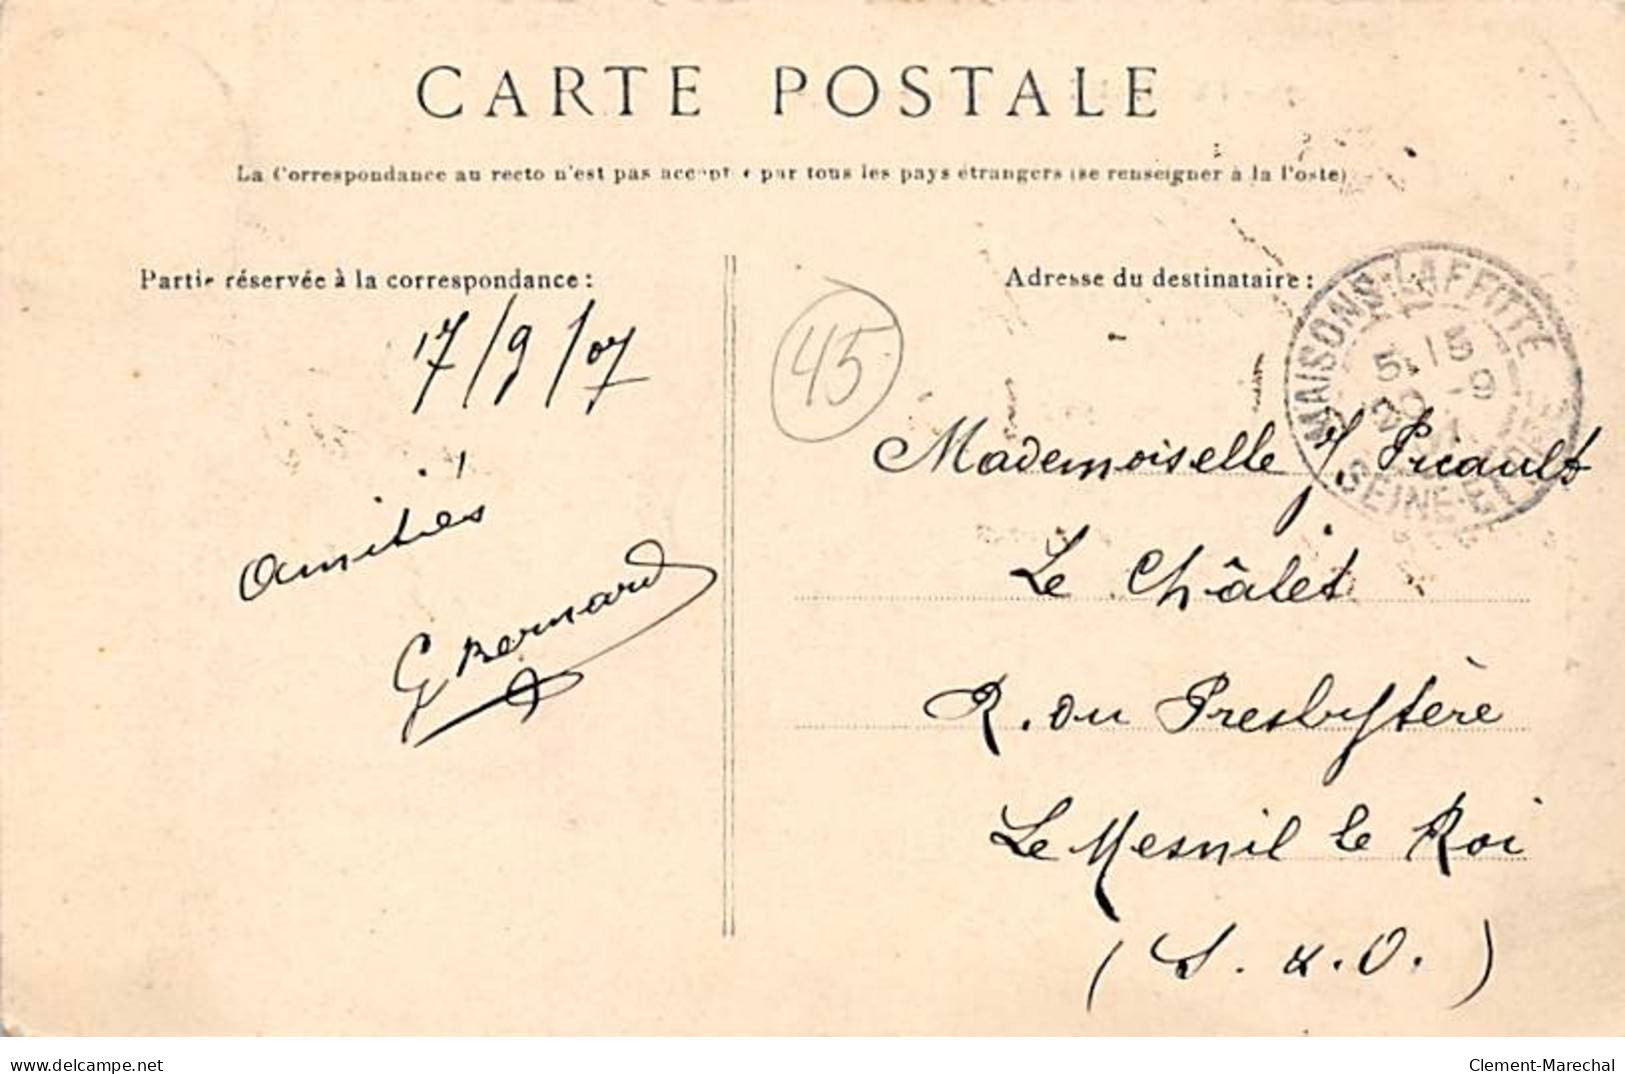 CARTE POSTALE
La Correspondance au recto n'est pas acceptée par tous les pays étrangers (se renseigner à la Poste)
Partie réservée à la correspondance :
17/9/07
Amitiés
G Bernard
45
Adresse du destinataire :
MAISONS-LAFFITTE
5.15
20-9
SEINE-ET-OISE
Mademoiselle J. Picault
Le Châlet
R. du Presbytère
Le Mesnil le Roi
(S. & O.)
delcampe.net
Clement-Marechal